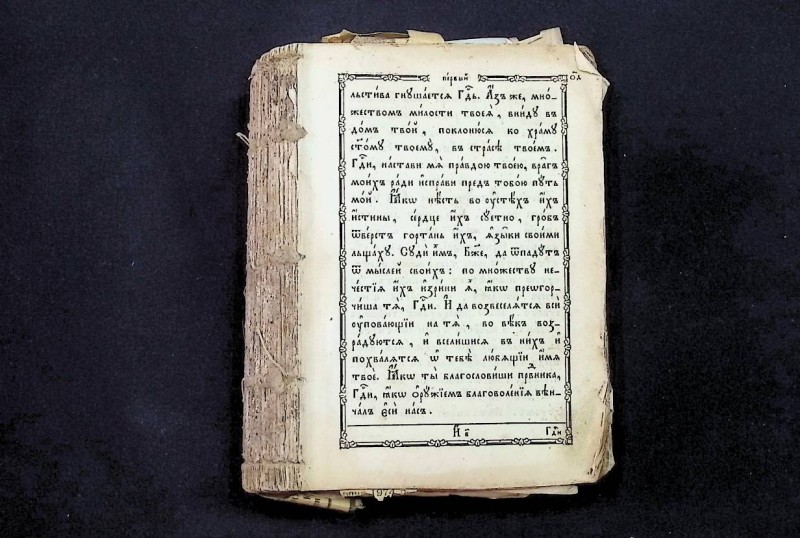 первый
льстива гнушается Гдь. Азъ же, мно-
жествомъ милости твоея, вниду въ
домъ твой, поклонюся ко храму
стому твоему, въ страсѣ твоемъ.
Гди, настави мя правдою твоею, врагъ
моихъ ради исправи предъ тобою путь
мой. Ꙗкѡ нѣсть во оустѣхъ ихъ
истины, сердце ихъ суетно, гробъ
ѿверстъ гортань ихъ, языки своими
льщаху. Суди имъ, Бже, да ѿпадутъ
ѿ мыслей своихъ : по множеству не-
честїя ихъ изрини я, ꙗкѡ преѡгор-
чиша тя, Гди. И да возвеселятся вси
оуповающїи на тя, во вѣкъ воз-
радуются, и вселишися въ нихъ и
похвалятся ѡ тебѣ любящїи имя
твое. Ꙗкѡ ты благословиши првника,
Гди, ꙗкѡ оружїемъ благоволенїя вѣн-
чалъ еси насъ.
Гди